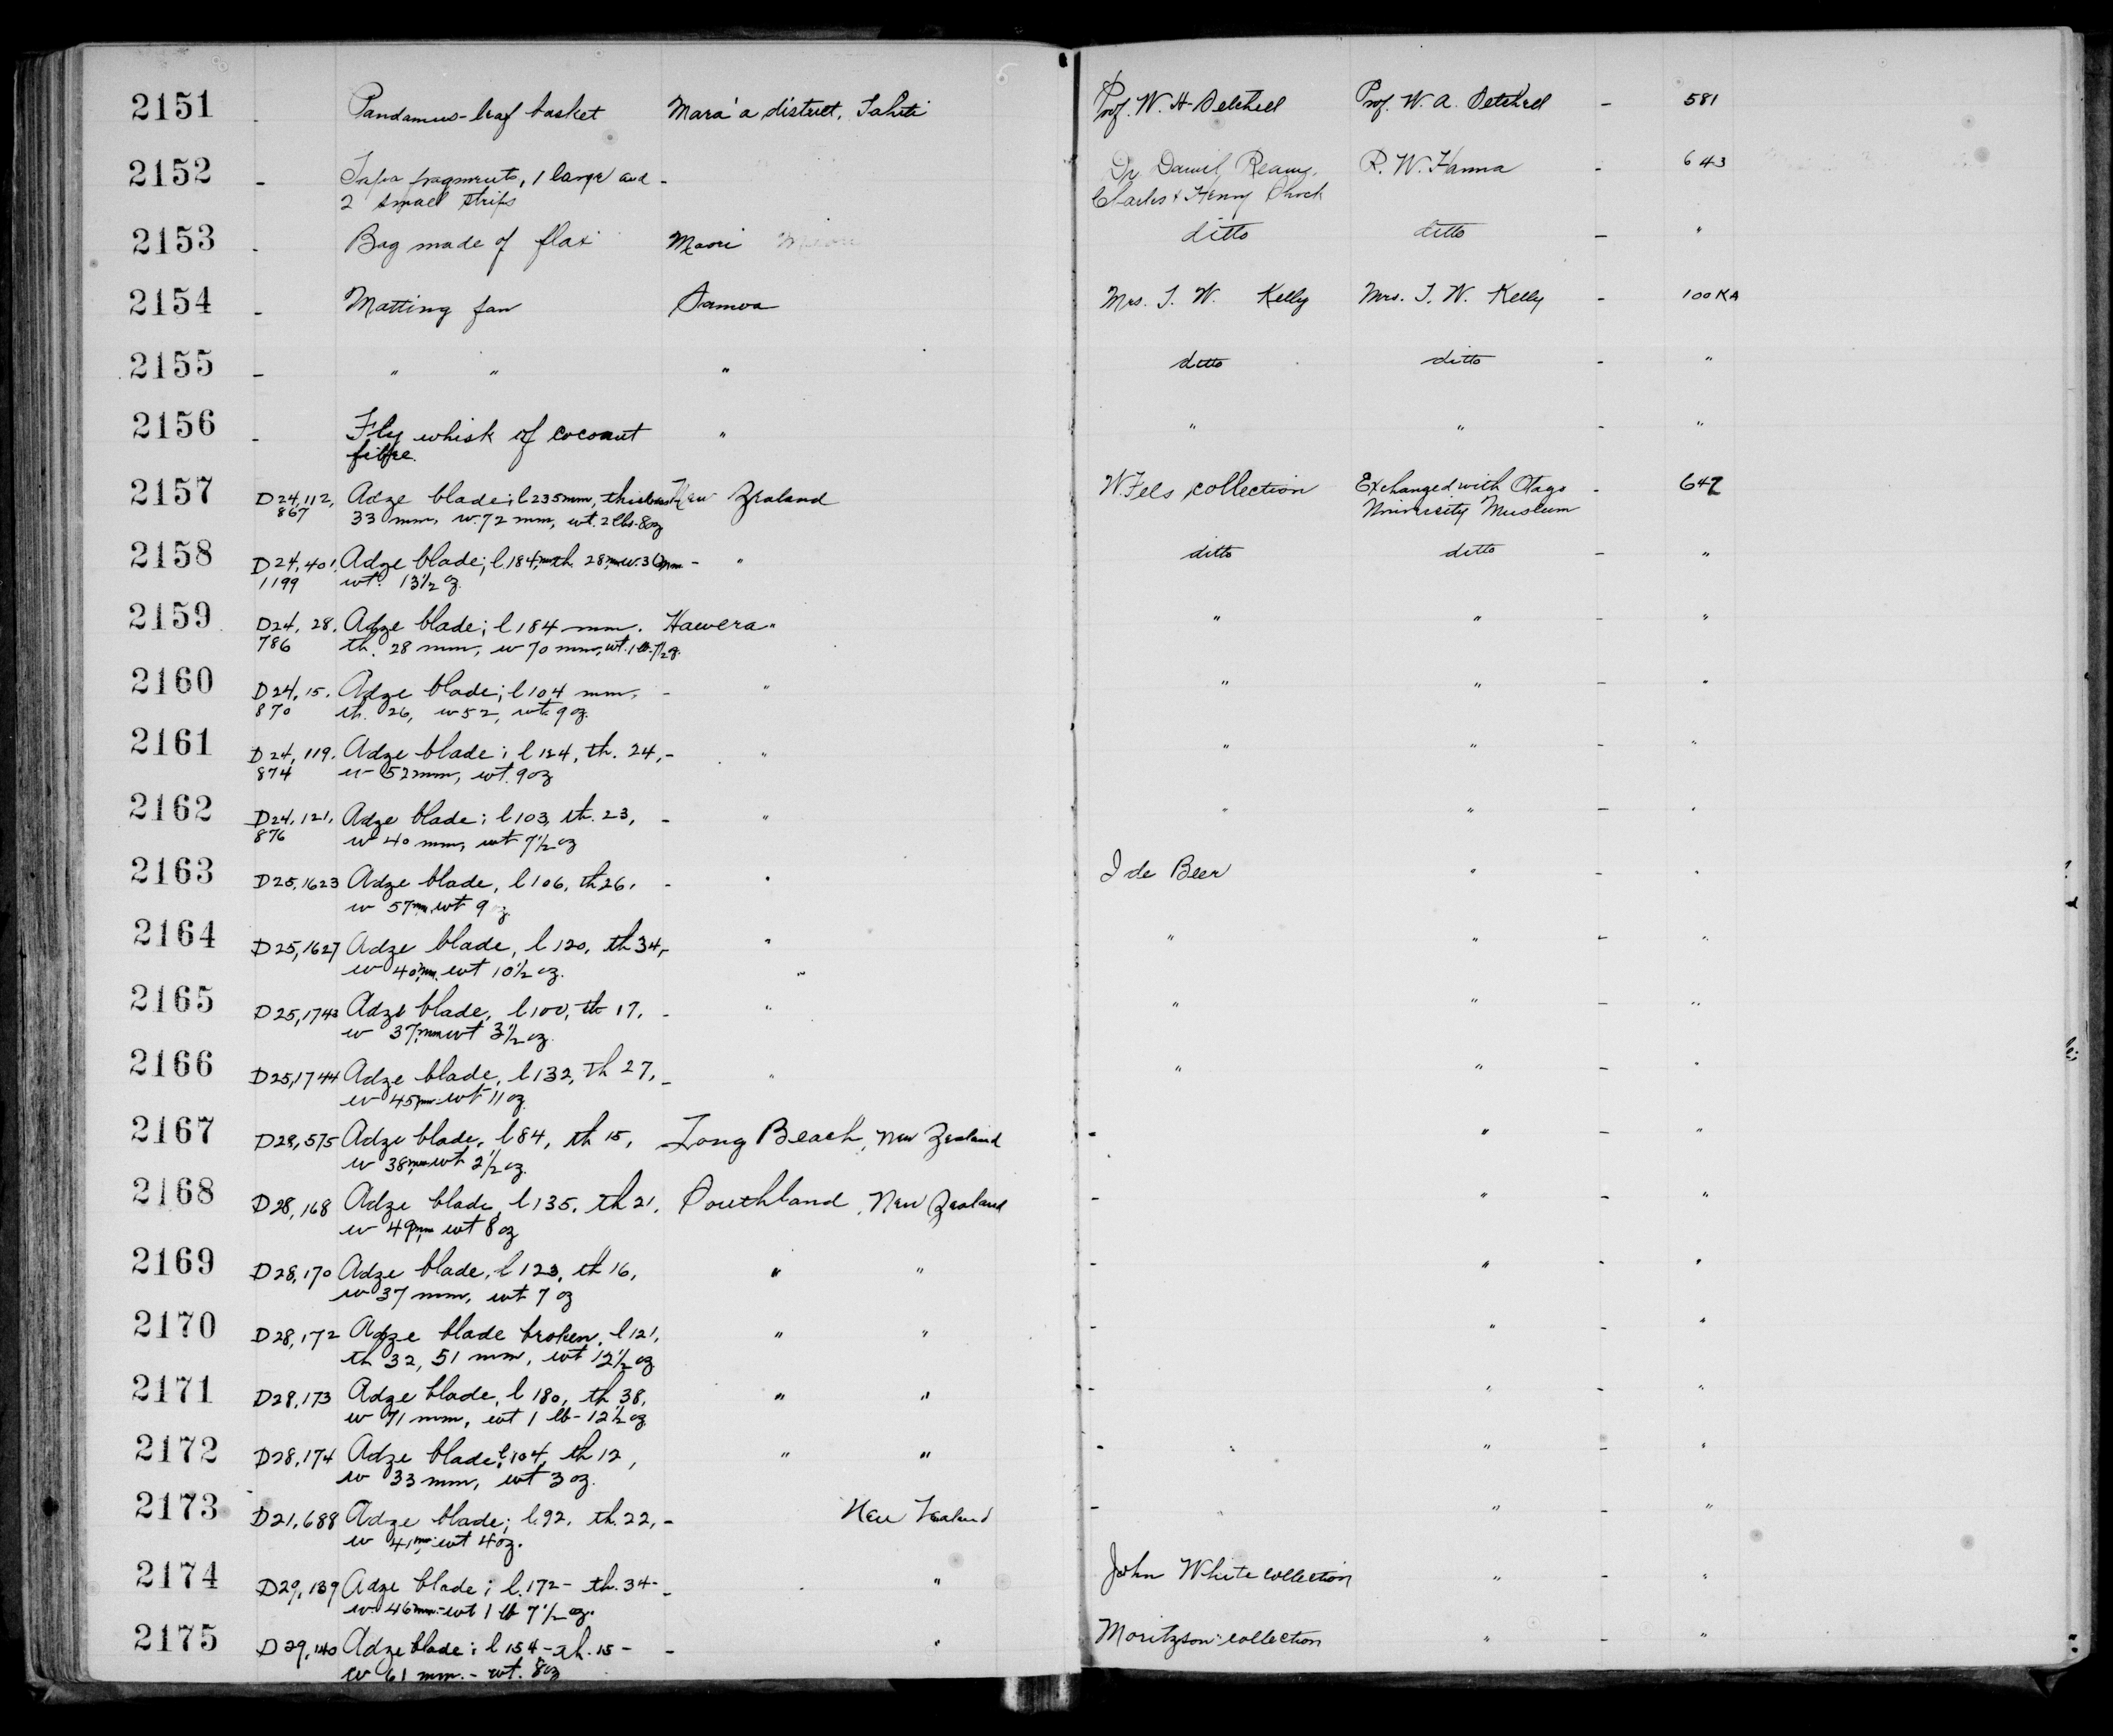 2151 - Pandanus-leaf basket Mara'a district, Tahiti Prof. W. H. Setchell Prof. W. A. Setchell - 581
2152 - Tapa fragments, 1 large and - Dr. Daniel, R. W. Hanna - 643
2 small strips Charles & Henry
2153 - Bag made of flax Maori ditto ditto - "
2154 - Matting fan Samoa Mrs. T. W. Kelly Mrs. T. W. Kelly - 100KA
2155 - " " " ditto ditto - "
2156 - Fly whisk of coconut " " " - "
fibre.
2157 D24,112, Adze blade; l 235mm, thickness New Zealand W. Fels collection Exchanged with Otago - 647
867 33 mm, w. 72 mm, wt. 2 lbs-8oz University Museum
2158 D24,401, Adze blade; l. 184mm th. 28mm w. 36mm - " ditto ditto - "
1199 wt. 13½ oz.
2159 D24, 28. Adze blade; l 184 mm. Hawera " " " - "
786 th. 28 mm, w 70 mm, wt. 1 lb.
2160 D24, 15. Adze blade; l 104 mm, - " " " - "
870 th. 26, w 52, wt 9 oz.
2161 D24, 119. Adze blade; l 124, th. 24, - " " " - "
874 w 52mm, wt. 9oz
2162 D24, 121, Adze blade; l 103, th. 23, - " " " - "
876 w 40 mm, wt 7½ oz
2163 D25,1623 Adze blade, l 106, th 26, - " I de Beer " - "
w 57mm, wt 9 oz
2164 D25,1627 Adze blade, l 120, th 34, - " " " - "
w 40mm, wt 10½ oz. "
2165 D25,1743 Adze blade, l 100, th 17, - " " " - "
w 37mm wt 3½ oz.
2166 D25,1744 Adze blade, l 132, th 27, - " " " - "
w 45mm wt 11 oz.
2167 D28,575 Adze blade, l 84, th 15, Long Beach, New Zealand - " - "
w 38mm wt 2½ oz.
2168 D28,168 Adze blade, l 135, th 21, Southland, New Zealand - " - "
w 49mm wt 8 oz
2169 D28,170 Adze blade, l 123, th 16, " " - " - "
w 37 mm, wt 7 oz
2170 D28,172 Adze blade broken, l 121, " " - " - "
th 32, 51 mm, wt 12½ oz
2171 D28,173 Adze blade, l 180, th 38, " " - " - "
w 71 mm, wt 1 lb - 12½ oz
2172 D28,174 Adze blade, l 104, th 12, " " - " - "
w 33 mm, wt 3 oz.
2173 D21,688 Adze blade; l. 92, th. 22, - New Zealand - " - "
w 41mm, wt 4 oz.
2174 D29,139 Adze blade; l. 172 - th. 34 - - " John White collection " - "
w 46mm - wt 1 lb 7½ oz.
2175 D29,140 Adze blade; l 154 - th. 15 - - " Moritzson collection " - "
w 61 mm. - wt. 8oz